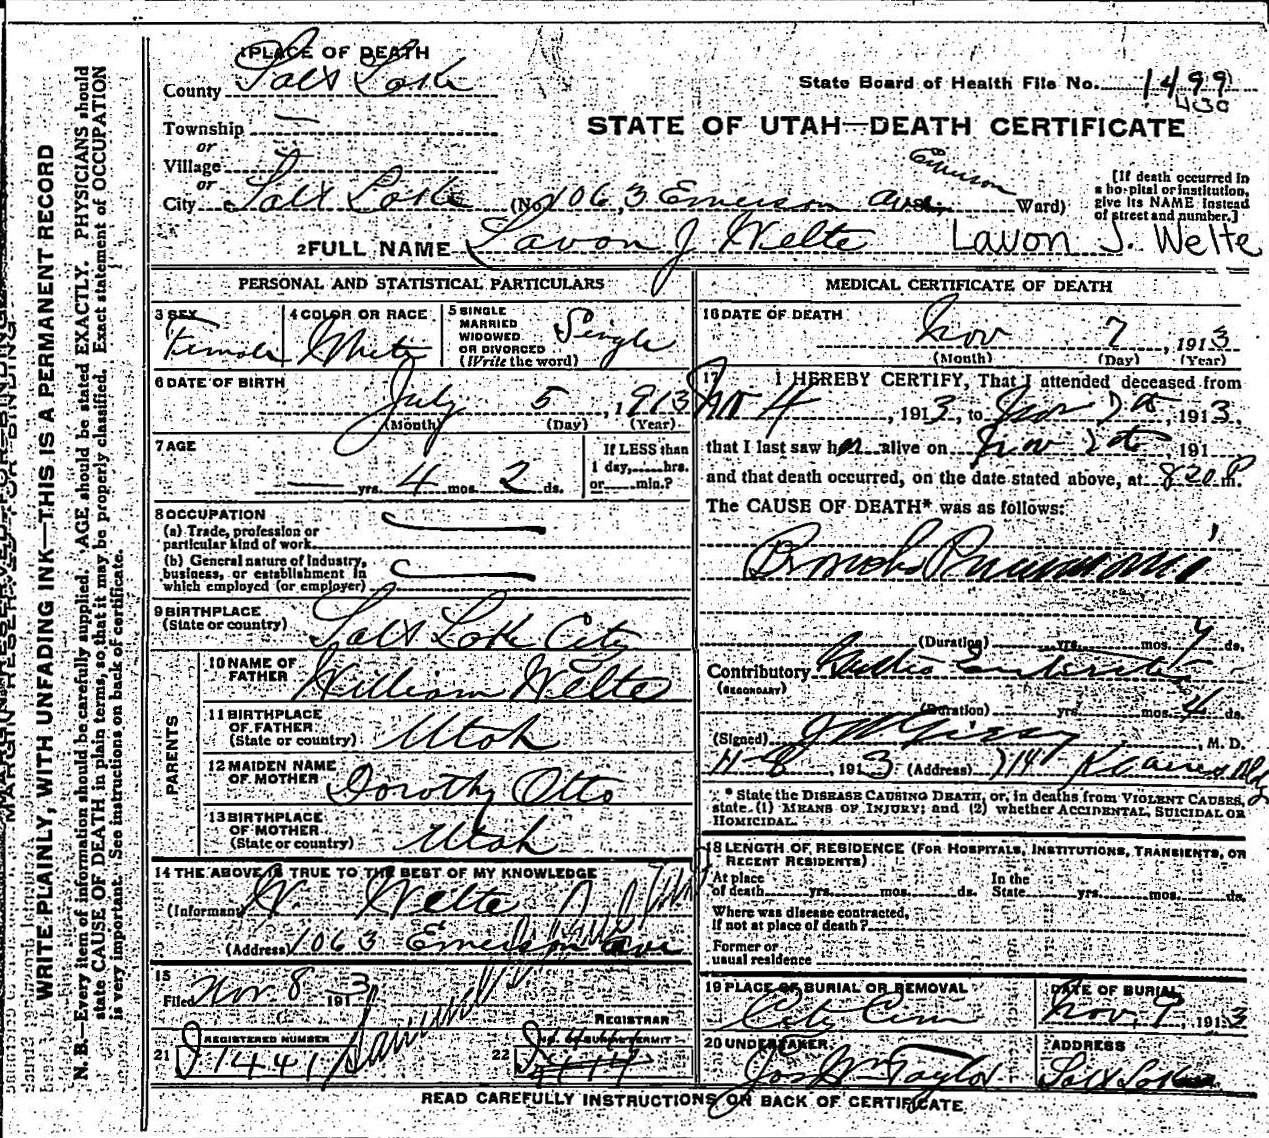 1 PLACE OF DEATH
County Salt Lake
State Board of Health File No. 1499
430
Township —
or
Village
or
STATE OF UTAH—DEATH CERTIFICATE
Emerson
City Salt Lake (No. 1063 Emerson Ave. Ward)
[If death occurred in
a hospital or institution,
give its NAME instead
of street and number.]
2 FULL NAME Lavon J Welte Lavon J. Welte
PERSONAL AND STATISTICAL PARTICULARS
3 SEX
Female
4 COLOR OR RACE
White
5 SINGLE
MARRIED
WIDOWED
OR DIVORCED
(Write the word)
Single
6 DATE OF BIRTH
July 5, 1913
(Month) (Day) (Year)
7 AGE
— yrs. 4 mos. 2 ds.
If LESS than
1 day,.....hrs.
or.....min.?
8 OCCUPATION
(a) Trade, profession or
particular kind of work
(b) General nature of industry,
business, or establishment in
which employed (or employer)
9 BIRTHPLACE
(State or country) Salt Lake City
PARENTS
10 NAME OF
FATHER William Welte
11 BIRTHPLACE
OF FATHER
(State or country) Utah
12 MAIDEN NAME
OF MOTHER Dorothy Otto
13 BIRTHPLACE
OF MOTHER
(State or country) Utah
14 THE ABOVE IS TRUE TO THE BEST OF MY KNOWLEDGE
(Informant) W Welte
(Address) 1063 Emerson Ave
15
Filed Nov. 8 1913
REGISTRAR
REGISTERED NUMBER
21 J 1441
22
MEDICAL CERTIFICATE OF DEATH
16 DATE OF DEATH
Nov 7, 1913
(Month) (Day) (Year)
17 I HEREBY CERTIFY, That I attended deceased from
Nov 4, 1913, to Nov 7th, 1913,
that I last saw her alive on Nov 7th, 191
and that death occurred, on the date stated above, at 820 P. m.
The CAUSE OF DEATH* was as follows:
Broncho Pneumonia
(Duration) yrs. mos. 4 ds.
Contributory
(SECONDARY)
(Duration) yrs. mos. 4 ds.
(Signed) , M. D.
11-8, 1913 (Address) 714
* State the DISEASE CAUSING DEATH, or, in deaths from VIOLENT CAUSES,
state (1) MEANS OF INJURY; and (2) whether ACCIDENTAL, SUICIDAL OR
HOMICIDAL.
18 LENGTH OF RESIDENCE (FOR HOSPITALS, INSTITUTIONS, TRANSIENTS, OR
RECENT RESIDENTS)
At place
of death yrs. mos. ds.
In the
State yrs. mos. ds.
Where was disease contracted,
if not at place of death?
Former or
usual residence
19 PLACE OF BURIAL OR REMOVAL
City Cem
DATE OF BURIAL
Nov. 9, 1913
20 UNDERTAKER
Jos Wm Taylor
ADDRESS
Salt Lake
READ CAREFULLY INSTRUCTIONS ON BACK OF CERTIFICATE
MARGIN RESERVED FOR BINDING
WRITE PLAINLY, WITH UNFADING INK—THIS IS A PERMANENT RECORD
N. B.—Every item of information should be carefully supplied. AGE should be stated EXACTLY. PHYSICIANS should
state CAUSE OF DEATH in plain terms, so that it may be properly classified. Exact statement of OCCUPATION
is very important. See instructions on back of certificate.